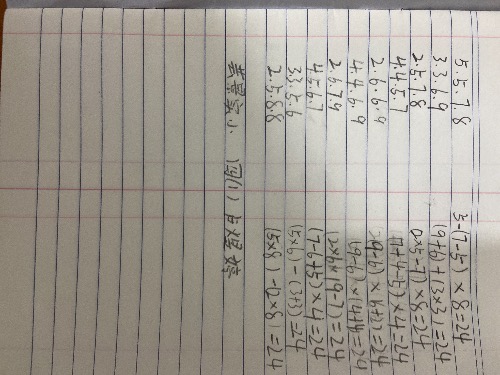 5.5.7.8 5-(7-5)×8=24
3.3.6.9 (9+6)+(3×3)=24
2.5.7.8 (2×5-7)×8=24
4.4.5.7 (7+4-5)×4=24
2.6.6.9 (9-6)×(6+2)=24
4.4.6.9 (9-6)×(4+4)=24
2.6.7.9 (2×6×(9-7)=24
4.5.6.7 (7-6+5)×4=24
3.3.5.6 (5×6)-(3+3)=24
2.5.8.8 (5×8)-(2×8)=24
景实小. 四(1) 煜婷